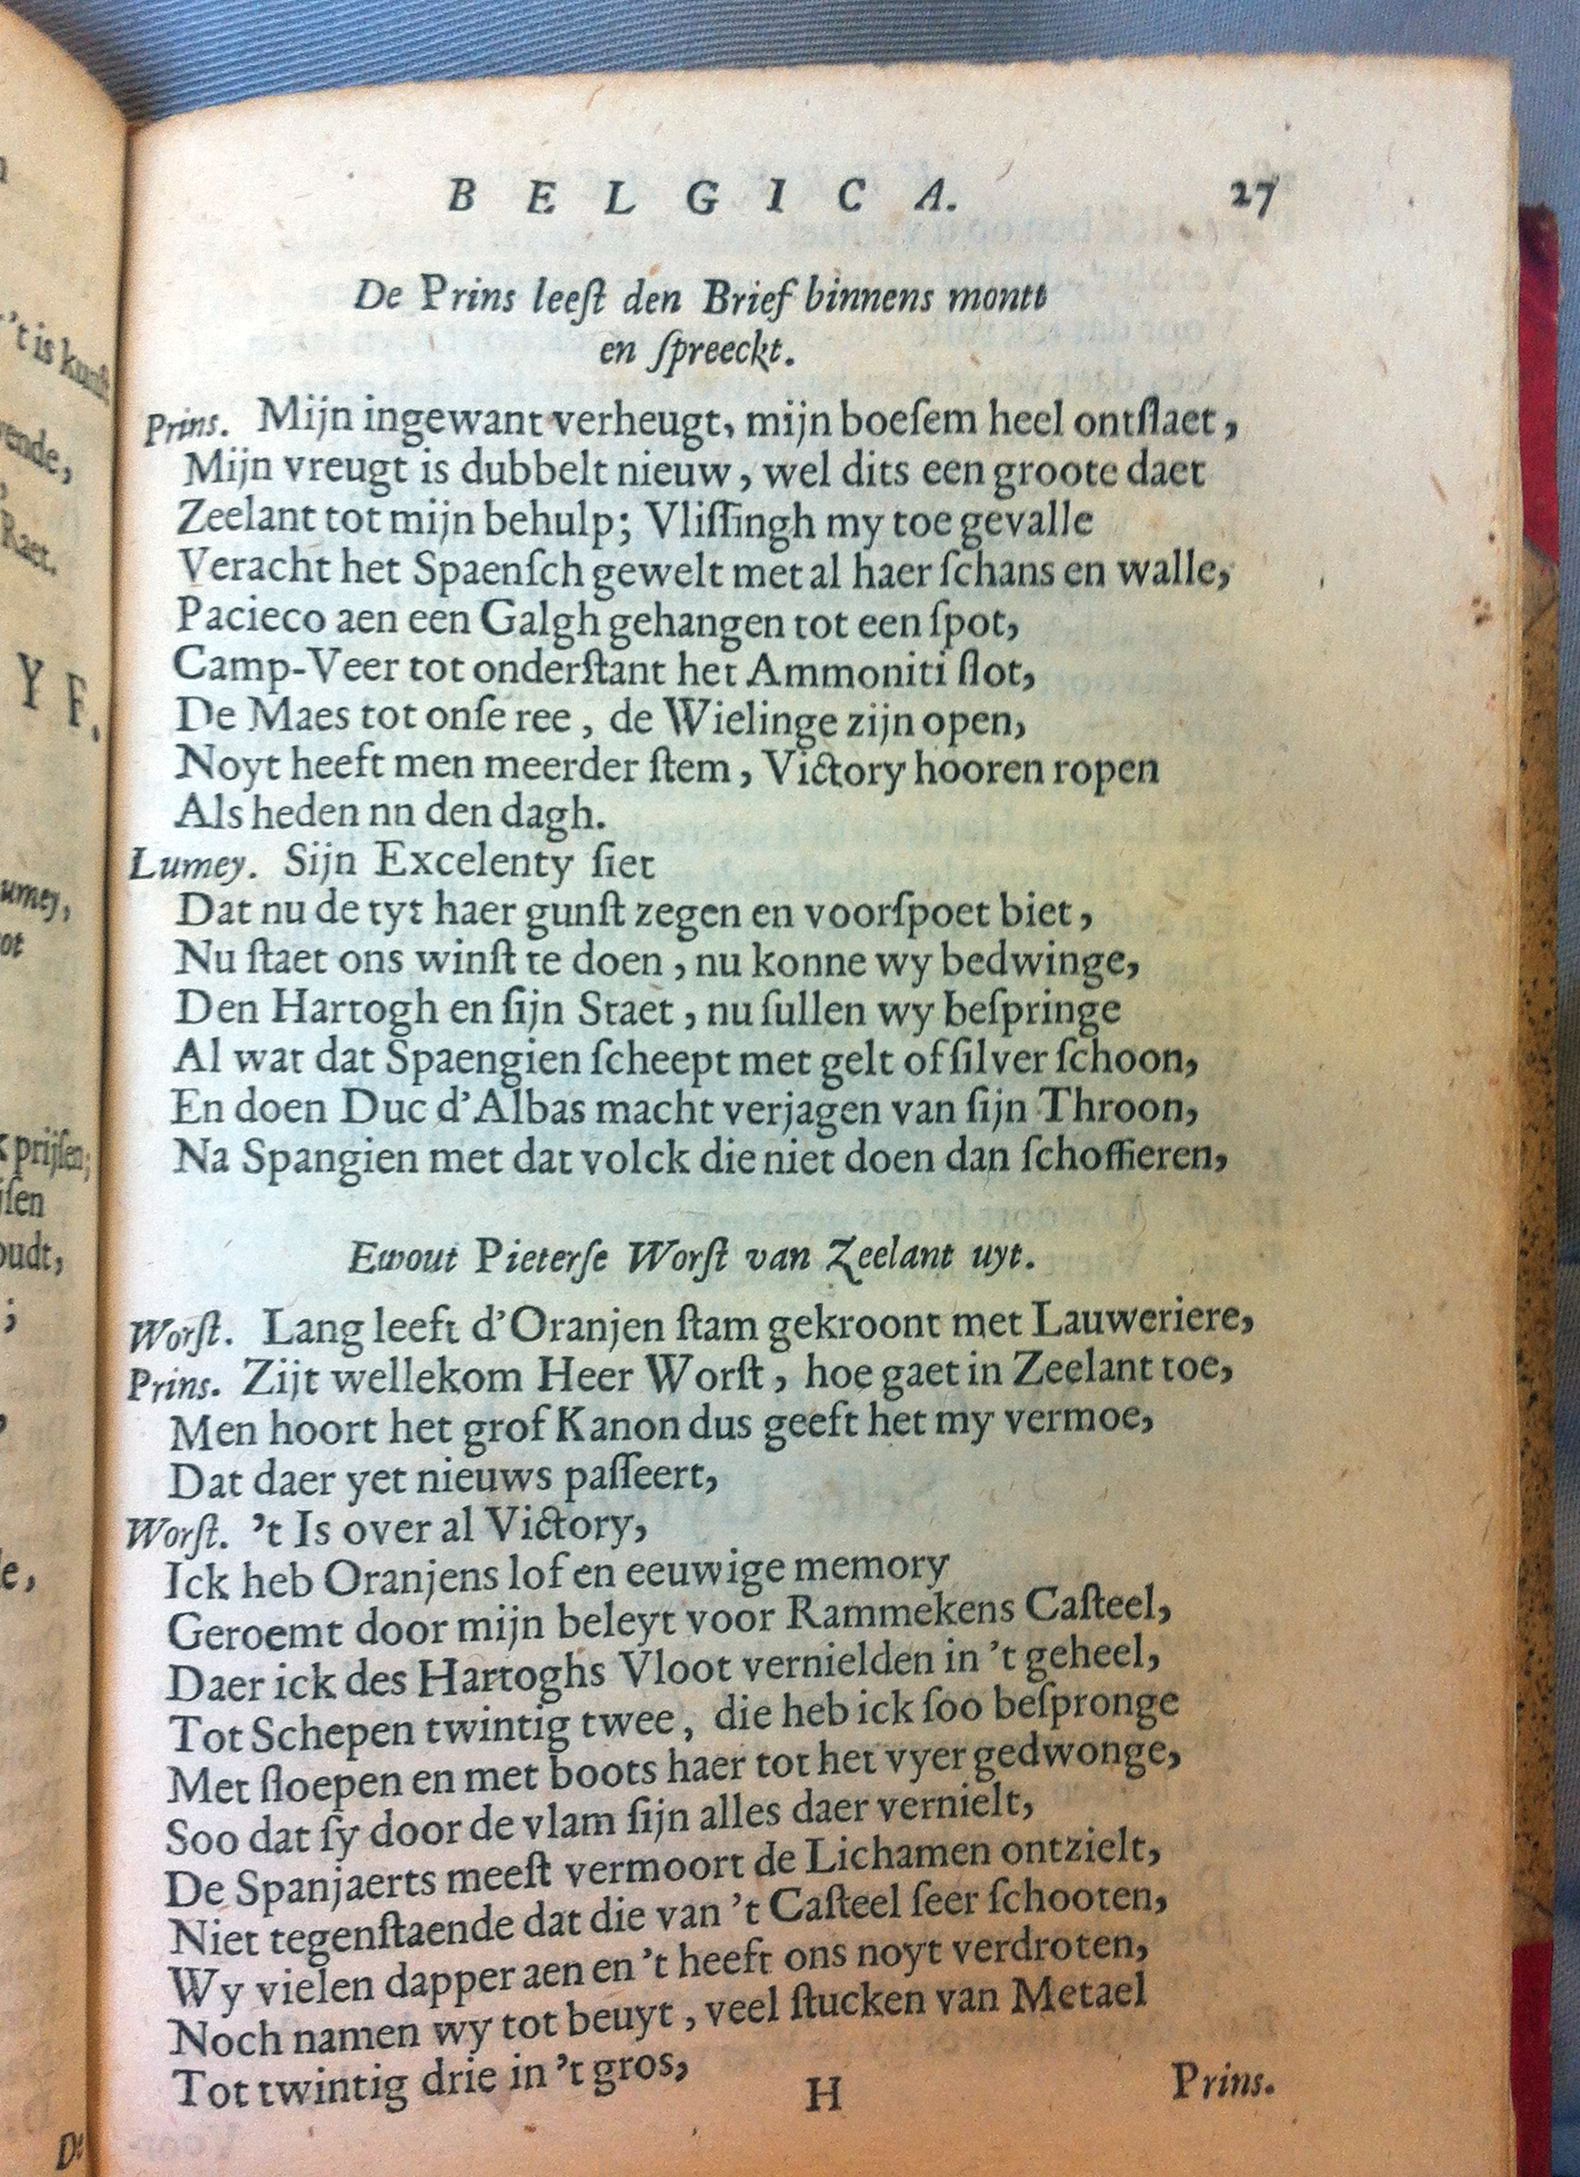 B E L G I C A. 27
De Prins leeſt den Brief binnens montt
en ſpreeckt.
Prins. Mijn ingewant verheugt, mijn boeſem heel ontſlaet,
Mijn vreugt is dubbelt nieuw, wel dits een groote daet
Zeelant tot mijn behulp; Vliſſingh my toe gevalle
Veracht het Spaenſch gewelt met al haer ſchans en walle,
Pacieco aen een Galgh gehangen tot een ſpot,
Camp-Veer tot onderſtant het Ammoniti ſlot,
De Maes tot onſe ree, de Wielinge zijn open,
Noyt heeft men meerder ſtem, Victory hooren ropen
Als heden nn den dagh.
Lumey. Sijn Excelenty ſiet
Dat nu de tyt haer gunſt zegen en voorſpoet biet,
Nu ſtaet ons winſt te doen, nu konne wy bedwinge,
Den Hartogh en ſijn Staet, nu ſullen wy beſpringe
Al wat dat Spaengien ſcheept met gelt of ſilver ſchoon,
En doen Duc d'Albas macht verjagen van ſijn Throon,
Na Spangien met dat volck die niet doen dan ſchoffieren,
Ewout Pieterſe Worſt van Zeelant uyt.
Worſt. Lang leeft d'Oranjen ſtam gekroont met Lauweriere,
Prins. Zijt wellekom Heer Worſt, hoe gaet in Zeelant toe,
Men hoort het grof Kanon dus geeft het my vermoe,
Dat daer yet nieuws paſſeert,
Worſt. 't Is over al Victory,
Ick heb Oranjens lof en eeuwige memory
Geroemt door mijn beleyt voor Rammekens Caſteel,
Daer ick des Hartoghs Vloot vernielden in 't geheel,
Tot Schepen twintig twee, die heb ick ſoo beſpronge
Met ſloepen en met boots haer tot het vyer gedwonge,
Soo dat ſy door de vlam ſijn alles daer vernielt,
De Spanjaerts meeſt vermoort de Lichamen ontzielt,
Niet tegenſtaende dat die van 't Caſteel ſeer ſchooten,
Wy vielen dapper aen en 't heeft ons noyt verdroten,
Noch namen wy tot beuyt, veel ſtucken van Metael
Tot twintig drie in 't gros,
H Prins.
't is kunſt
vende,
Raet.
Y F.
umey,
ot
k prijſen;
ijſen
oudt,
;
e,